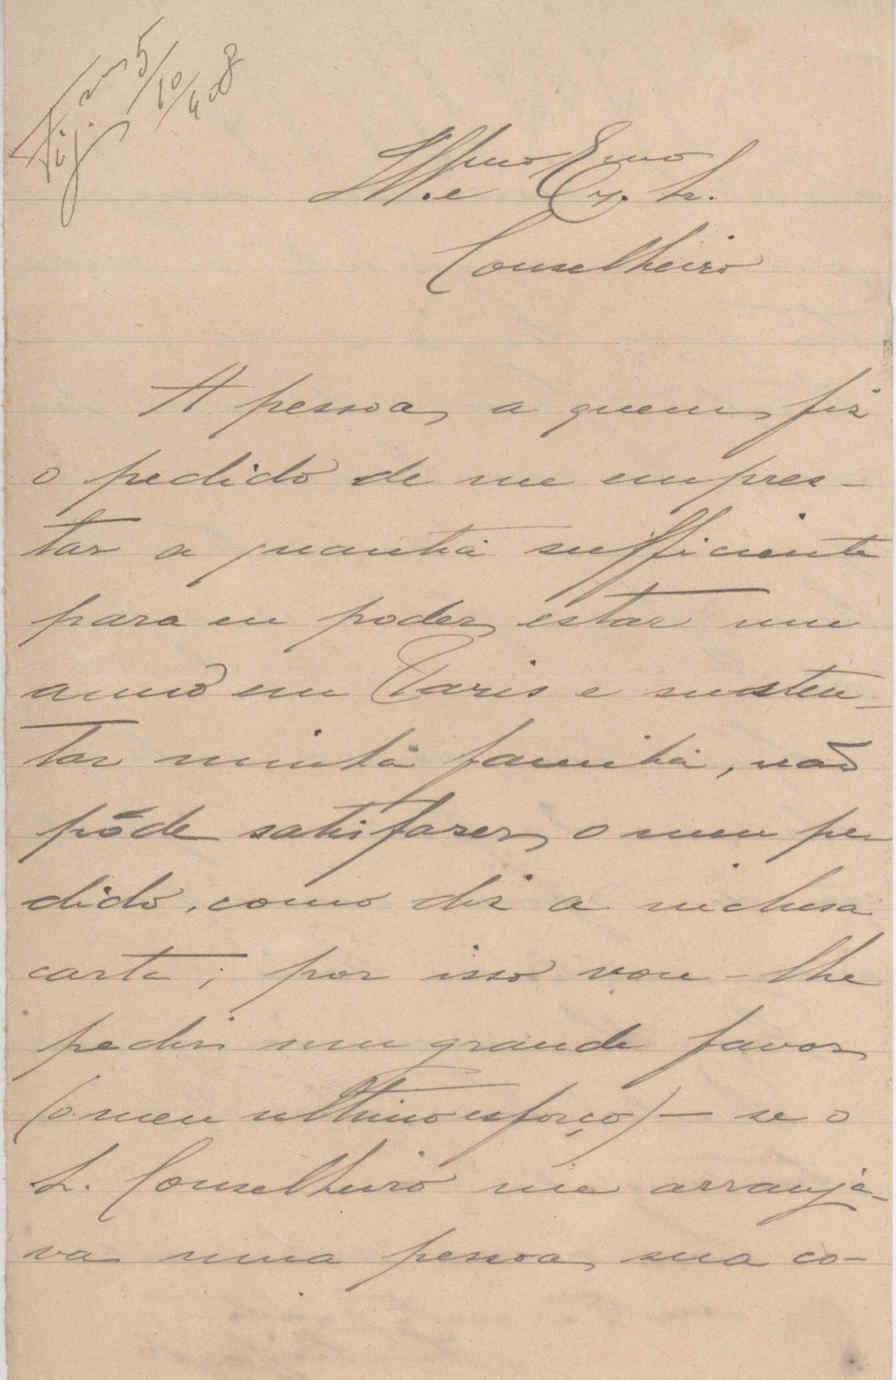 5/10/908
Illmo e Exmo Sr.
Conselheiro
A pessoa, a quem, fiz
o pedido de me empres-
tar a quantia sufficiente
para eu poder, estar um
anno em Paris e susten-
tar minha familia, não
pôde satisfazer, o meu pe-
dido, como diz a inclusa
carta; por isso vou-lhe
pedir um grande favor,
(o meu ultimo esforço) — se o
Sr. Conselheiro me arranja-
va uma pessoa, sua co-